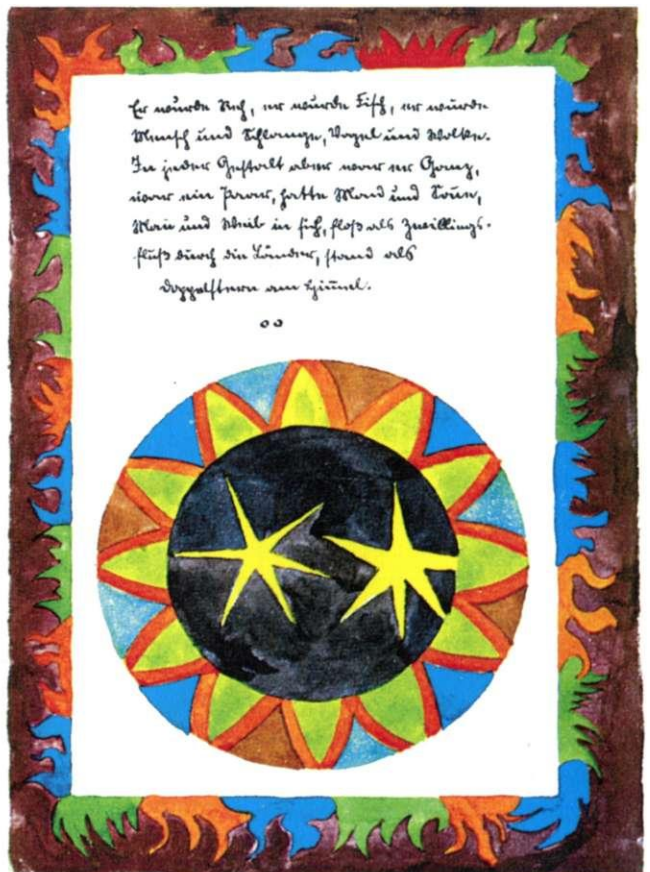 Er wurde Reh, er wurde Fisch, er wurde
Mensch und Schlange, Vogel und Wolke.
In jeder Gestalt aber war er Ganz,
war ein Paar, hatte Mond und Son̄e,
Man̄ und Weib in sich, floß als Zwillings-
fluß durch die Länder, stand als
Doppelstern am Him̄el.